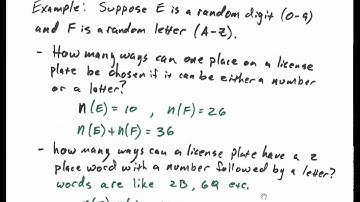 Example: Suppose E is a random digit (0-9)
and F is a random letter (A-Z).
- How many ways can one place on a license
plate be chosen if it can be either a number
or a letter?
n(E)=10 , n(F)=26
n(E)+n(F)=36
- how many ways can a license plate have a 2
place word with a number followed by a letter?
words are like 2B, 6Q etc.